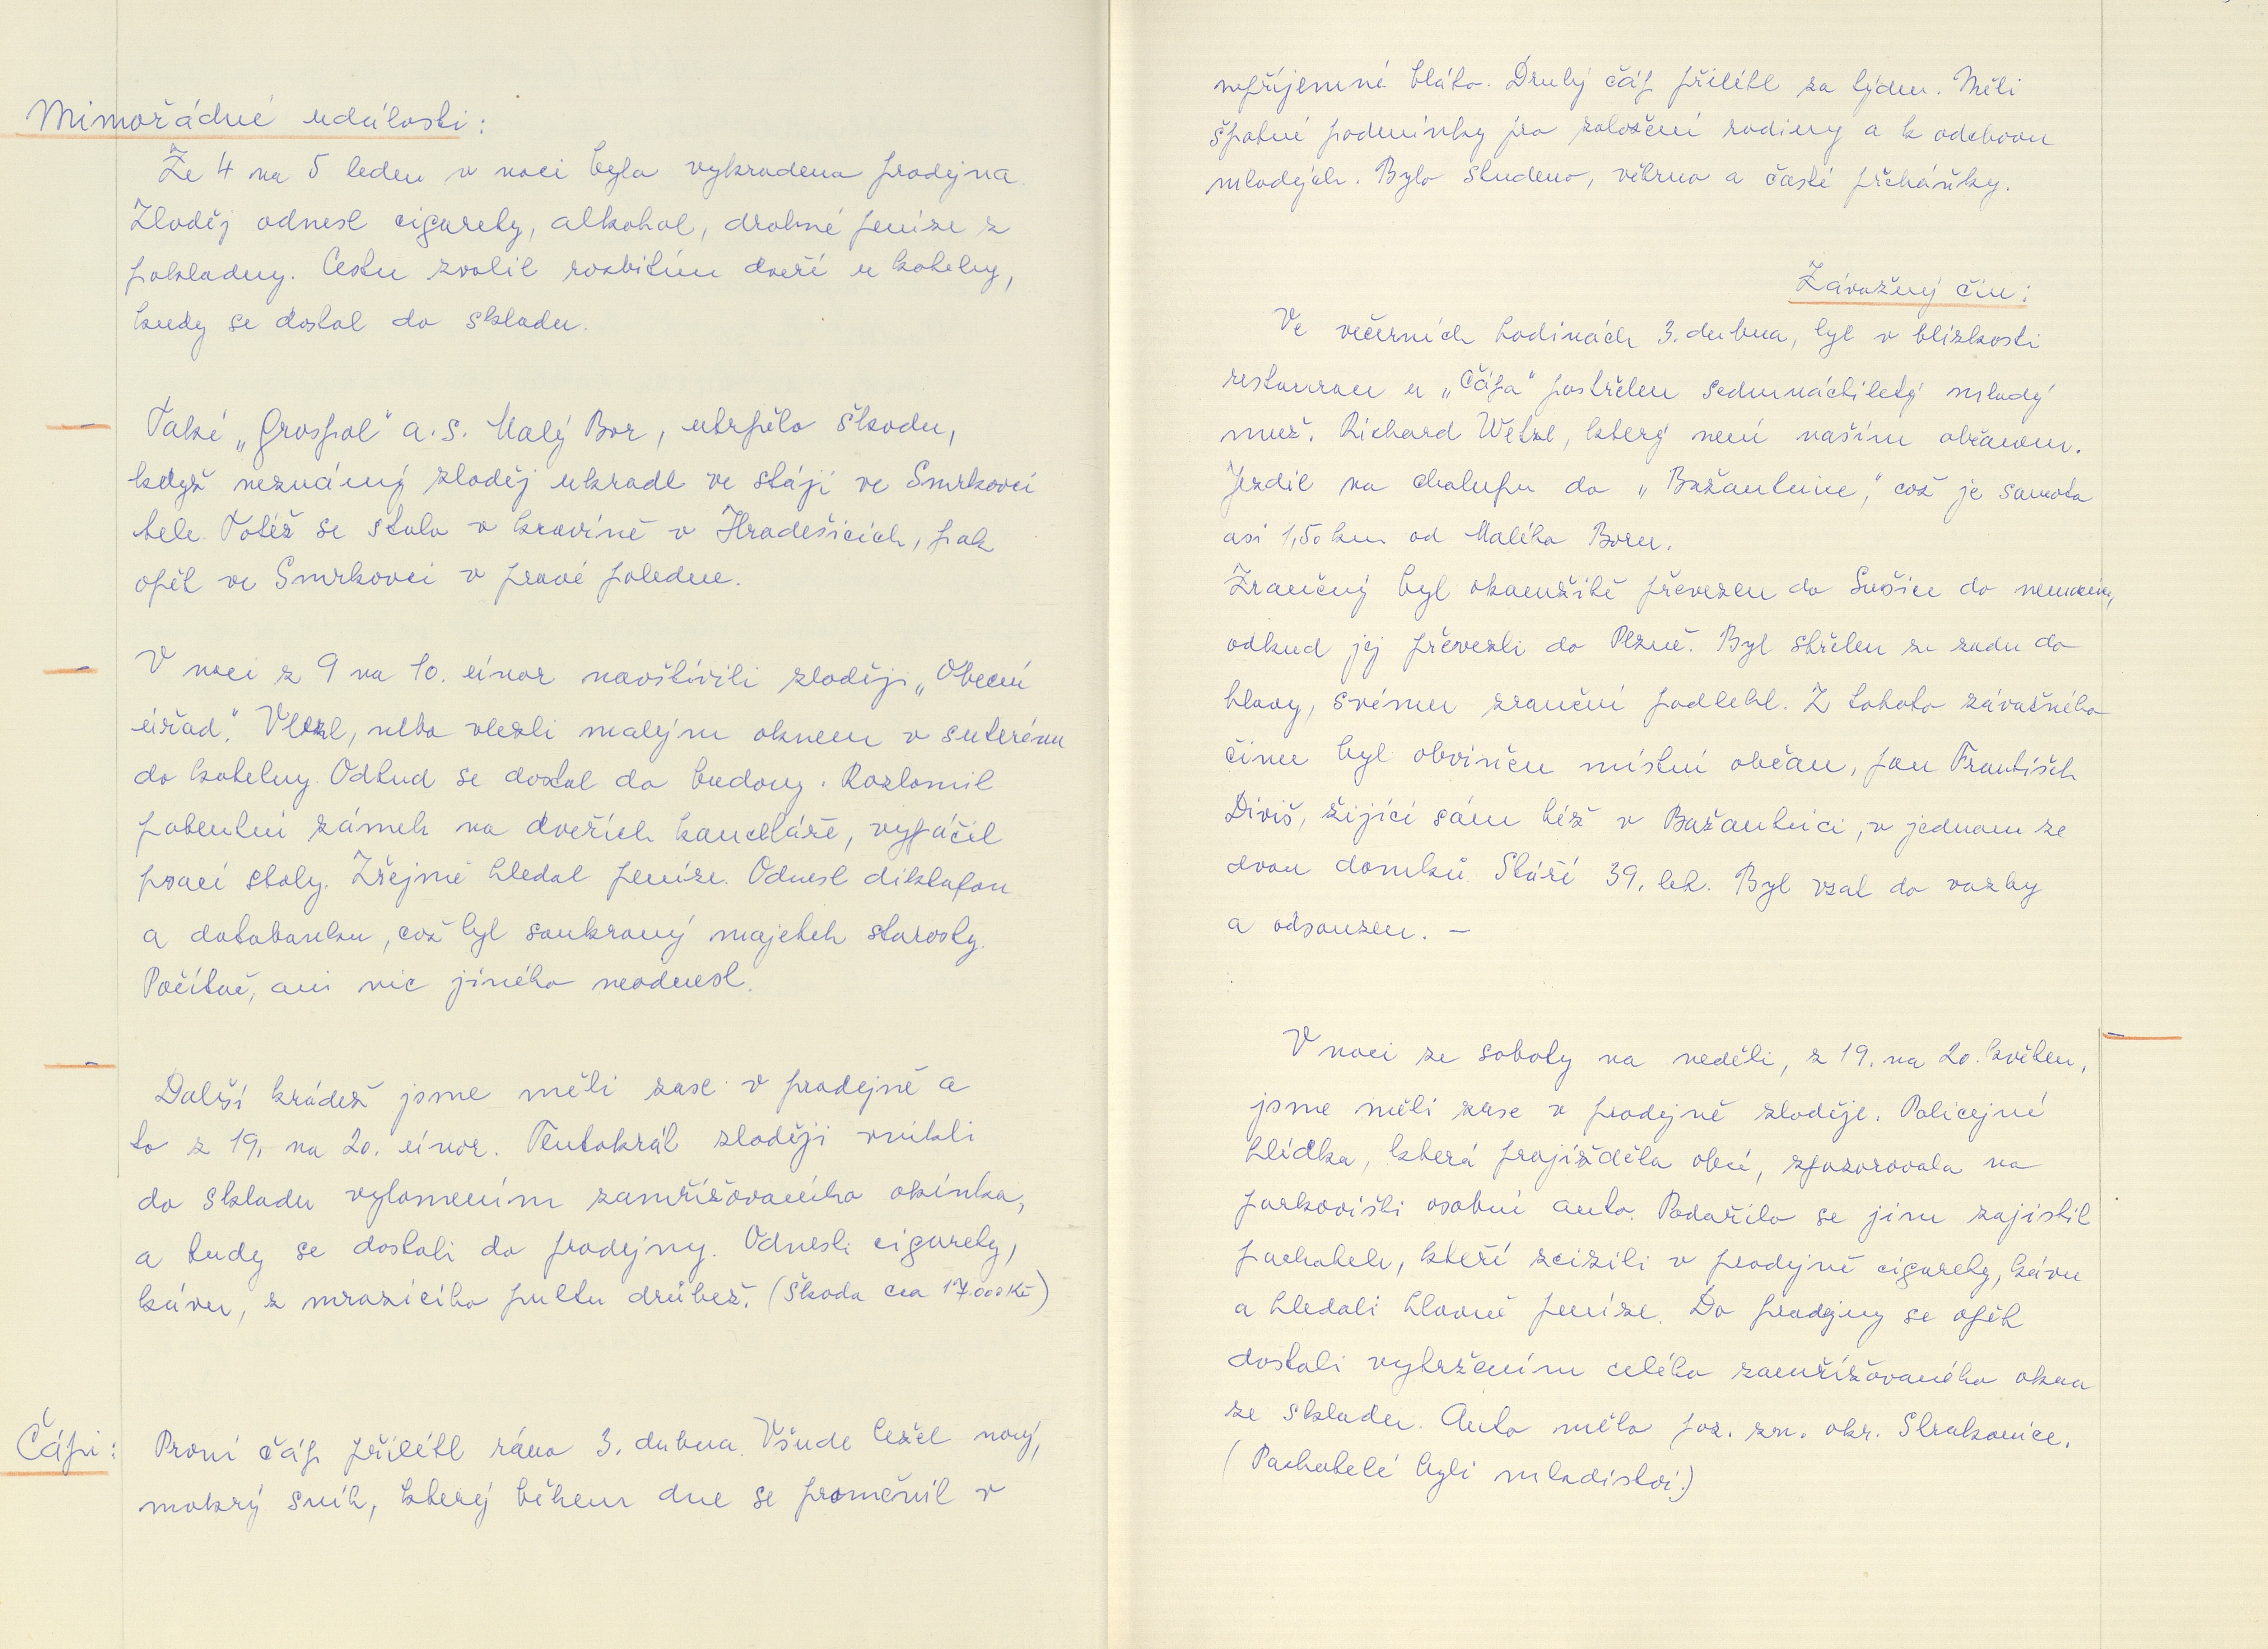 Mimořádné události:
Ze 4 na 5 leden v noci byla vykradena prodejna.
Zloděj odnesl cigarety, alkohol, drobné peníze z
pokladny. Cestu zvolil rozbitím dveří u kotelny,
kudy se dostal do skladu.
Také „Grospol" a.s. Malý Bor, utrpělo škodu,
když neznámý zloděj ukradl ve stáji ve Smrkovci
tele. Totéž se stalo v kravíně v Hradešicích, pak
opět ve Smrkovci v pravé poledne.
V noci z 9 na 10. únor navštívili zloději „Obecní
úřad." Vlezl, nebo vlezli malým oknem v suterénu
do kotelny. Odtud se dostal do budovy. Rozlomil
patentní zámek na dveřích kanceláře, vypáčil
prací stoly. Zřejmě hledal peníze. Odnesl diktafon
a databanku, což byl soukromý majetek starosty.
Počítač, ani nic jiného neodnesl.
Další krádež jsme měli zase v prodejně a
to z 19. na 20. únor. Tentokrát zloději vnikli
do skladu vylomením zamřížovaného okénka,
a tudy se dostali do prodejny. Odnesli cigarety,
kávu, z mrazícího pultu drůbež. (Škoda cca 17.000 Kč)
Čápi: První čáp přilétl ráno 3. dubna. Všude ležel nový,
mokrý sníh, který během dne se proměnil v
nepříjemné bláto. Druhý čáp přilétl za týden. Měli
špatné podmínky pro založení rodiny a k odchovu
mladých. Bylo studeno, větrno a časté přeháňky.
Závažný čin:
Ve večerních hodinách 3. dubna, byl v blízkosti
restaurace u „Čápa" postřelen sedmnáctiletý mladý
muž. Richard Wetzl, který není naším občanem.
Jezdil na chalupu do „Bažantnice," což je samota
asi 1,50 km od Malého Boru.
Zraněný byl okamžitě převezen do Sušice do nemocnice,
odkud jej převezli do Plzně. Byl střelen ze zadu do
hlavy, svému zranění podlehl. Z tohoto závažného
činu byl obviněn místní občan, pan František
Diviš, žijící sám též v Bažantnici, v jednom ze
dvou domků. Stáří 39. let. Byl vzat do vazby
a odsouzen. —
V noci ze soboty na neděli, z 19. na 20. květen,
jsme měli zase v prodejně zloděje. Policejní
hlídka, která projížděla obcí, zpozorovala na
parkovišti osobní auto. Podařilo se jim zajistit
pachatele, kteří zcizili v prodejně cigarety, kávu
a hledali hlavně peníze. Do prodejny se opět
dostali vytržením celého zamřížovaného okna
ze skladu. Auto mělo poz. zn. okr. Strakonice.
(Pachatelé byli mladiství.)